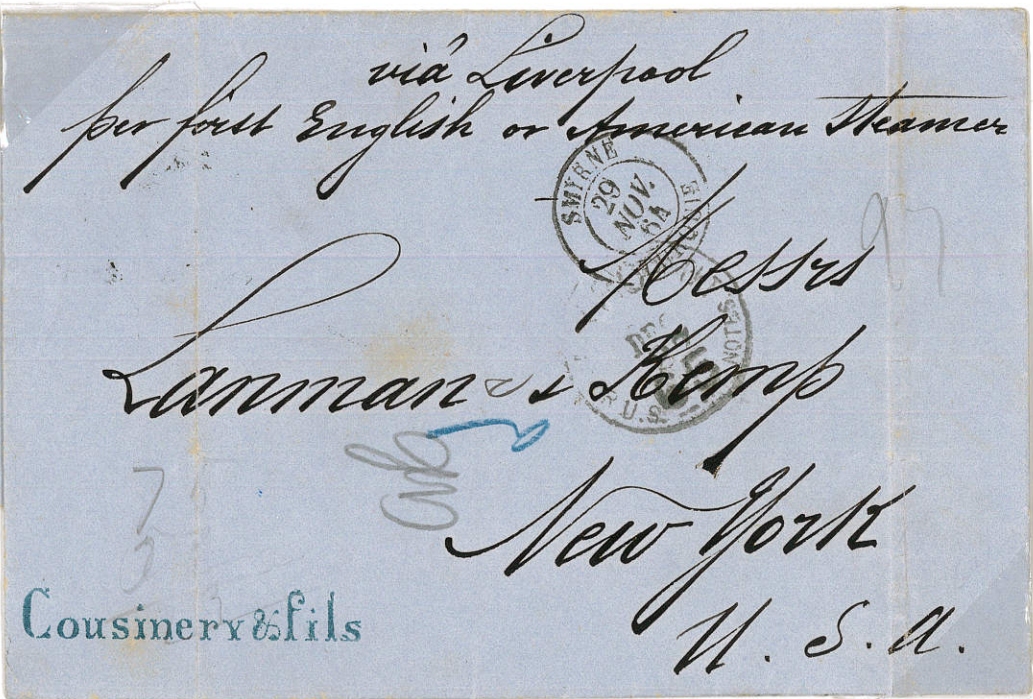 viá Liverpool
per first English or American Steamer
SMYRNE
29
NOV.
64
Messrs
Lanman & Kemp
U.S. NOTES
New York
U. S. A.
Cousinery & fils